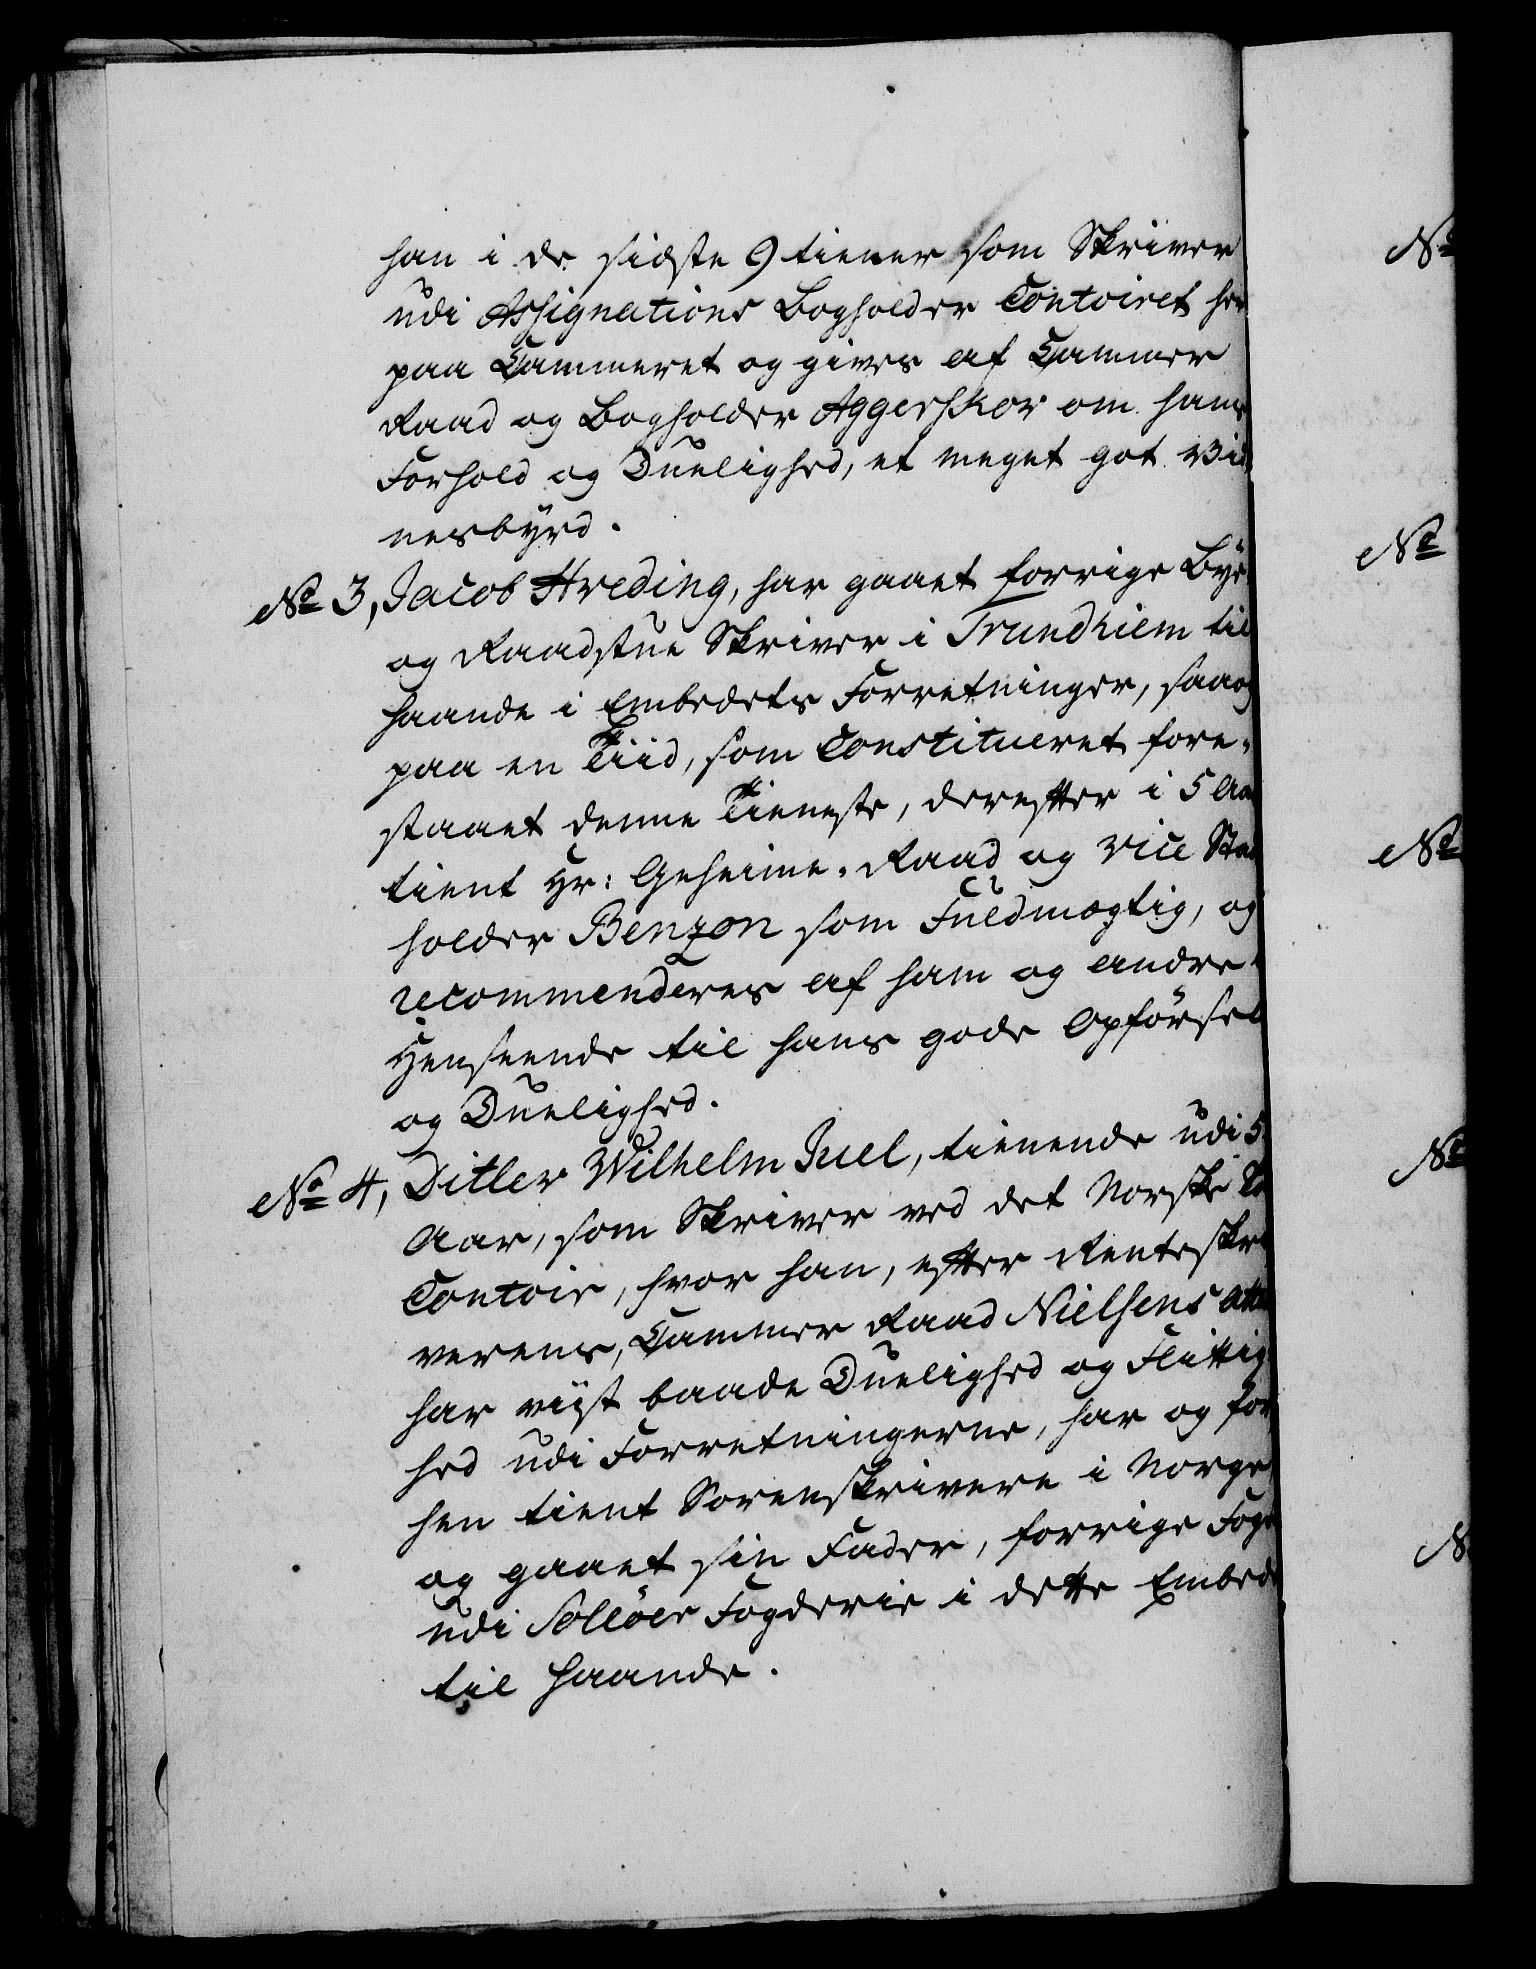 han i de sidste 9 tiener som Skriver
udi Assignations Bogholder Contoiret her
paa Cammeret og gives af Cammer
Raad og Bogholder Aggerskov om hans
Forhold og Duelighed, et meget got Vid
nesbyrd.
No 3, Jacob Hveding, har gaaet forrige Bye
og Raadstue Skriver i Trundhiem til
haande i Embedets Forretninger, saaog
paa en Tiid, som Constitueret fore-
staaet denne Tieneste, derefter i 5 Aar
tient Hr: Geheime-Raad og Vice Stat
holder Benzon som Fuldmægtig, og
recommenderes af ham og andre i
Henseende til hans gode Opførsel
og Duelighed.
No 4, Ditlev Wilhelm Juel, tienende udi 5
Aar, som Skriver ved det Norske
Contoir, hvor han, efter Renteskri
verens, Cammer Raad Nielsens
har viist baade Duelighed og Flittig
hed udi Forretningerne, har og for
hen tient Sorenskrivere i Norge
og gaaet sin Fader, forrige Foged
udi Solløer Fogderie i dette Embede
til haande.
No
No
No
No
N